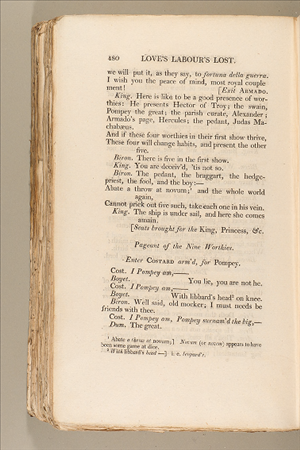 480 LOVE'S LABOUR'S LOST.
we will put it, as they say, to fortuna della guerra.
I wish you the peace of mind, most royal couple-
ment! [Exit ARMADO.
King. Here is like to be a good presence of wor-
thies: He presents Hector of Troy; the swain,
Pompey the great; the parish curate, Alexander;
Armado's page, Hercules; the pedant, Judas Ma-
chabæus.
And if these four worthies in their first show thrive,
These four will change habits, and present the other
five.
Biron. There is five in the first show.
King. You are deceiv'd, 'tis not so.
Biron. The pedant, the braggart, the hedge-
priest, the fool, and the boy:—
Abate a throw at novum;¹ and the whole world
again,
Cannot prick out five such, take each one in his vein.
King. The ship is under sail, and here she comes
amain.
[Seats brought for the King, Princess, &c.
Pageant of the Nine Worthies.
Enter COSTARD arm'd, for Pompey.
Cost. I Pompey am,——
Boyet. You lie, you are not he.
Cost. I Pompey am,——
Boyet. With libbard's head² on knee.
Biron. Well said, old mocker; I must needs be
friends with thee.
Cost. I Pompey am, Pompey surnam'd the big,—
Dum. The great.
¹ Abate a throw at novum;] Novum (or novem) appears to have
been some game at dice.
² With libbard's head —] i. e. leopard's.